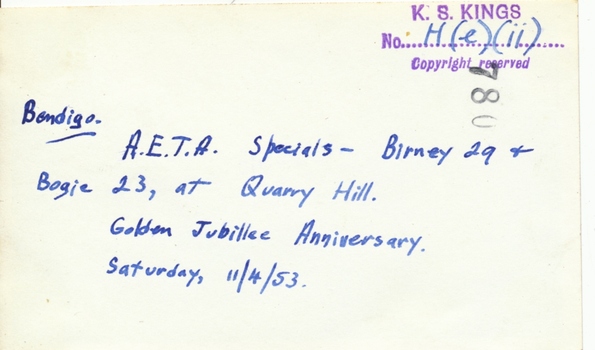 K. S. KINGS
No. H(e)(ii)
Copyright reserved
780
Bendigo.
A.E.T.A. Specials - Birney 29 &
Bogie 23, at Quarry Hill.
Golden Jubillee Anniversary.
Saturday, 11/4/53.